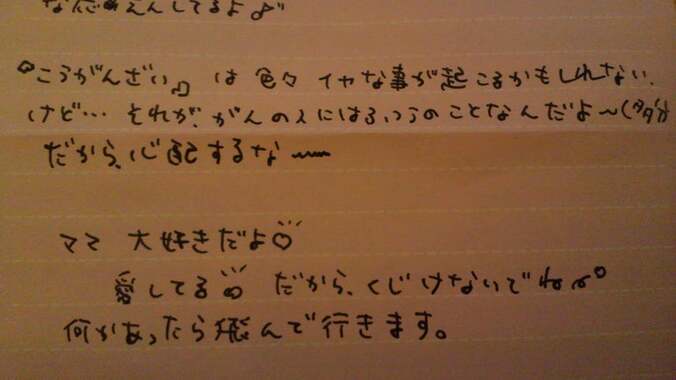 な応めえんしてるよ♪"
『こうがんざい』は色々イヤな事が起こるかもしれない.
けど… それが、がんの人にはふつうのことなんだよ～(多分
だから、心配するなー
ママ 大好きだよ♡
愛してる だから、くじけないでね
何かあったら飛んで行きます。